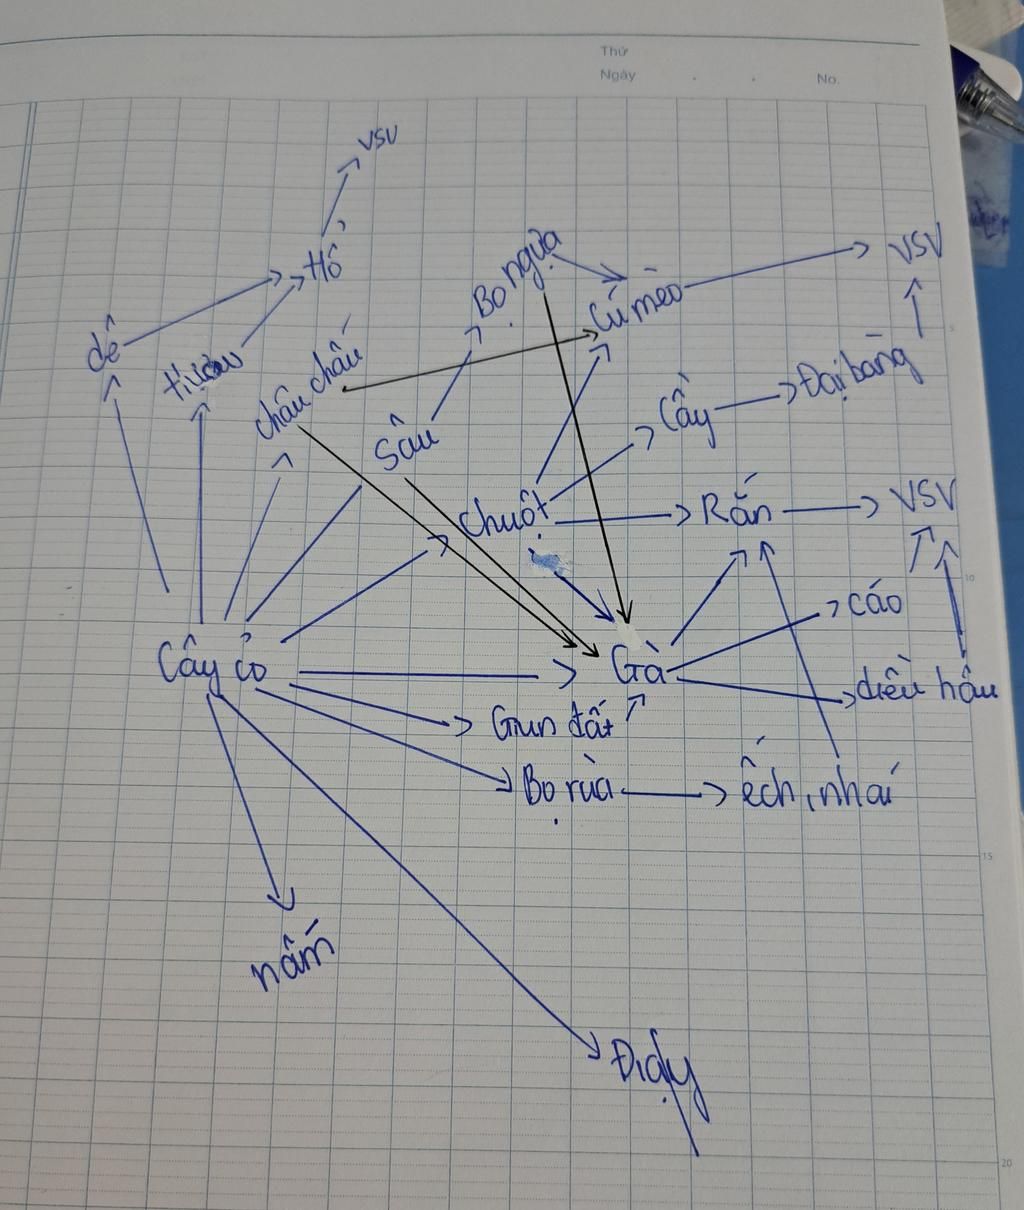 Thứ
Ngày . . No.
VSV
Hổ
Bọ ngựa
VSV
Cú mèo
dê
châu chấu
Đại bàng
Cầy
Sâu
Chuột
Rắn
VSV
5
10
cáo
Cây cỏ
Gà
diều hâu
Giun đất
Bọ rùa
ếch, nhái
15
nấm
Địa y
20